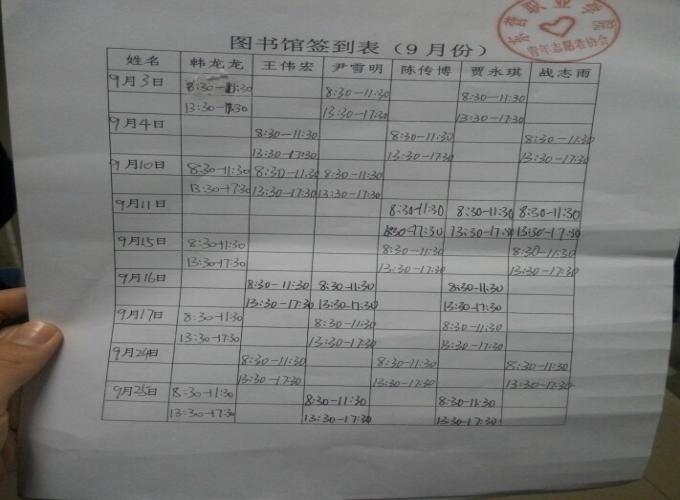 职业学院
青年志愿者协会
图书馆签到表（9月份）
姓名 韩龙龙 王伟宏 尹雪明 陈传博 贾永琪 战志雨
9月3日 8:30-11:30 8:30-11:30 8:30-11:30
13:30-17:30 13:30-17:30 13:30-17:30
9月4日 8:30-11:30 8:30-11:30 8:30-11:30
13:30-17:30 13:30-17:30 13:30-17:30
9月10日 8:30-11:30 8:30-11:30 8:30-11:30
13:30-17:30 13:30-17:30 13:30-17:30
9月11日 8:30-11:30 8:30-11:30 8:30-11:30
13:30-17:30 13:30-17:30 13:30-17:30
9月15日 8:30-11:30 8:30-11:30 8:30-11:30
13:30-17:30 13:30-17:30 13:30-17:30
9月16日 8:30-11:30 8:30-11:30 8:30-11:30
13:30-17:30 13:30-17:30 13:30-17:30
9月17日 8:30-11:30 8:30-11:30 8:30-11:30
13:30-17:30 13:30-17:30 13:30-17:30
9月24日 8:30-11:30 8:30-11:30 8:30-11:30
13:30-17:30 13:30-17:30 13:30-17:30
9月25日 8:30-11:30 8:30-11:30 8:30-11:30
13:30-17:30 13:30-17:30 13:30-17:30